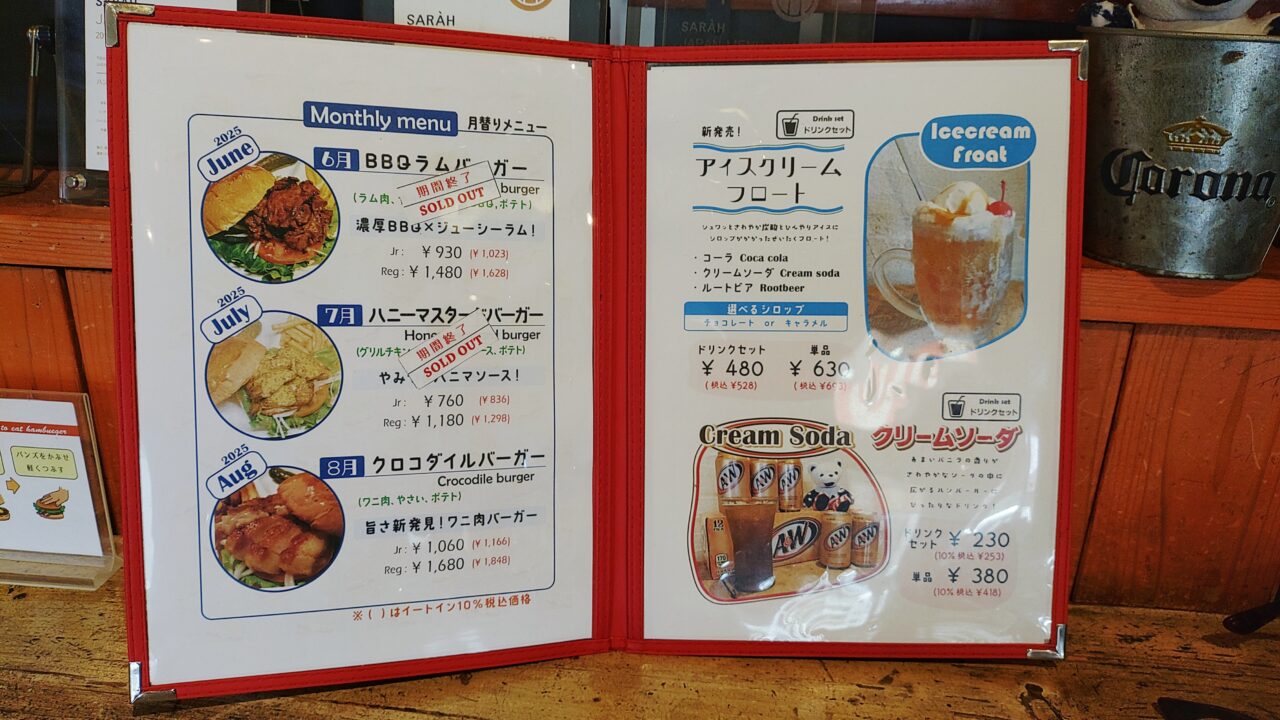 SARÀH
SARÀH
SARÀH
Monthly menu 月替りメニュー
2025
June
6月 BBQラムバーガー
期間終了
SOLD OUT
burger
(ラム肉、 BBQ,ポテト)
濃厚BBQ×ジューシーラム!
Jr: ¥930 (¥1,023)
Reg: ¥1,480 (¥1,628)
2025
July
7月 ハニーマスタードバーガー
期間終了
SOLD OUT
burger
(グリルチキン ース、ポテト)
やみ ハニマソース!
Jr: ¥760 (¥836)
Reg: ¥1,180 (¥1,298)
2025
Aug
8月 クロコダイルバーガー
Crocodile burger
(ワニ肉、やさい、ポテト)
旨さ新発見!ワニ肉バーガー
Jr: ¥1,060 (¥1,166)
Reg: ¥1,680 (¥1,848)
※( )はイートイン10%税込価格
新発売!
Drink set
ドリンクセット
アイスクリーム
フロート
Icecream
Froat
シュワっとさわやか炭酸とひんやりアイスに
シロップがかかったぜいたくフロート!
・コーラ Coca cola
・クリームソーダ Cream soda
・ルートビア Rootbeer
選べるシロップ
チョコレート or キャラメル
ドリンクセット 単品
¥480 ¥630
(税込¥528) (税込¥693)
Drink set
ドリンクセット
Cream Soda クリームソーダ
あまいバニラの香りが
さわやかなソーダの中に
広がるハンバーガーに
ぴったりなドリンク!
ドリンクセット ¥230
(10%税込¥253)
単品 ¥380
(10%税込¥418)
A&W
A&W
A&W
A&W
A&W
A&W
12
Corona
to eat hamburger
バンズをかぶせ
軽くつぶす